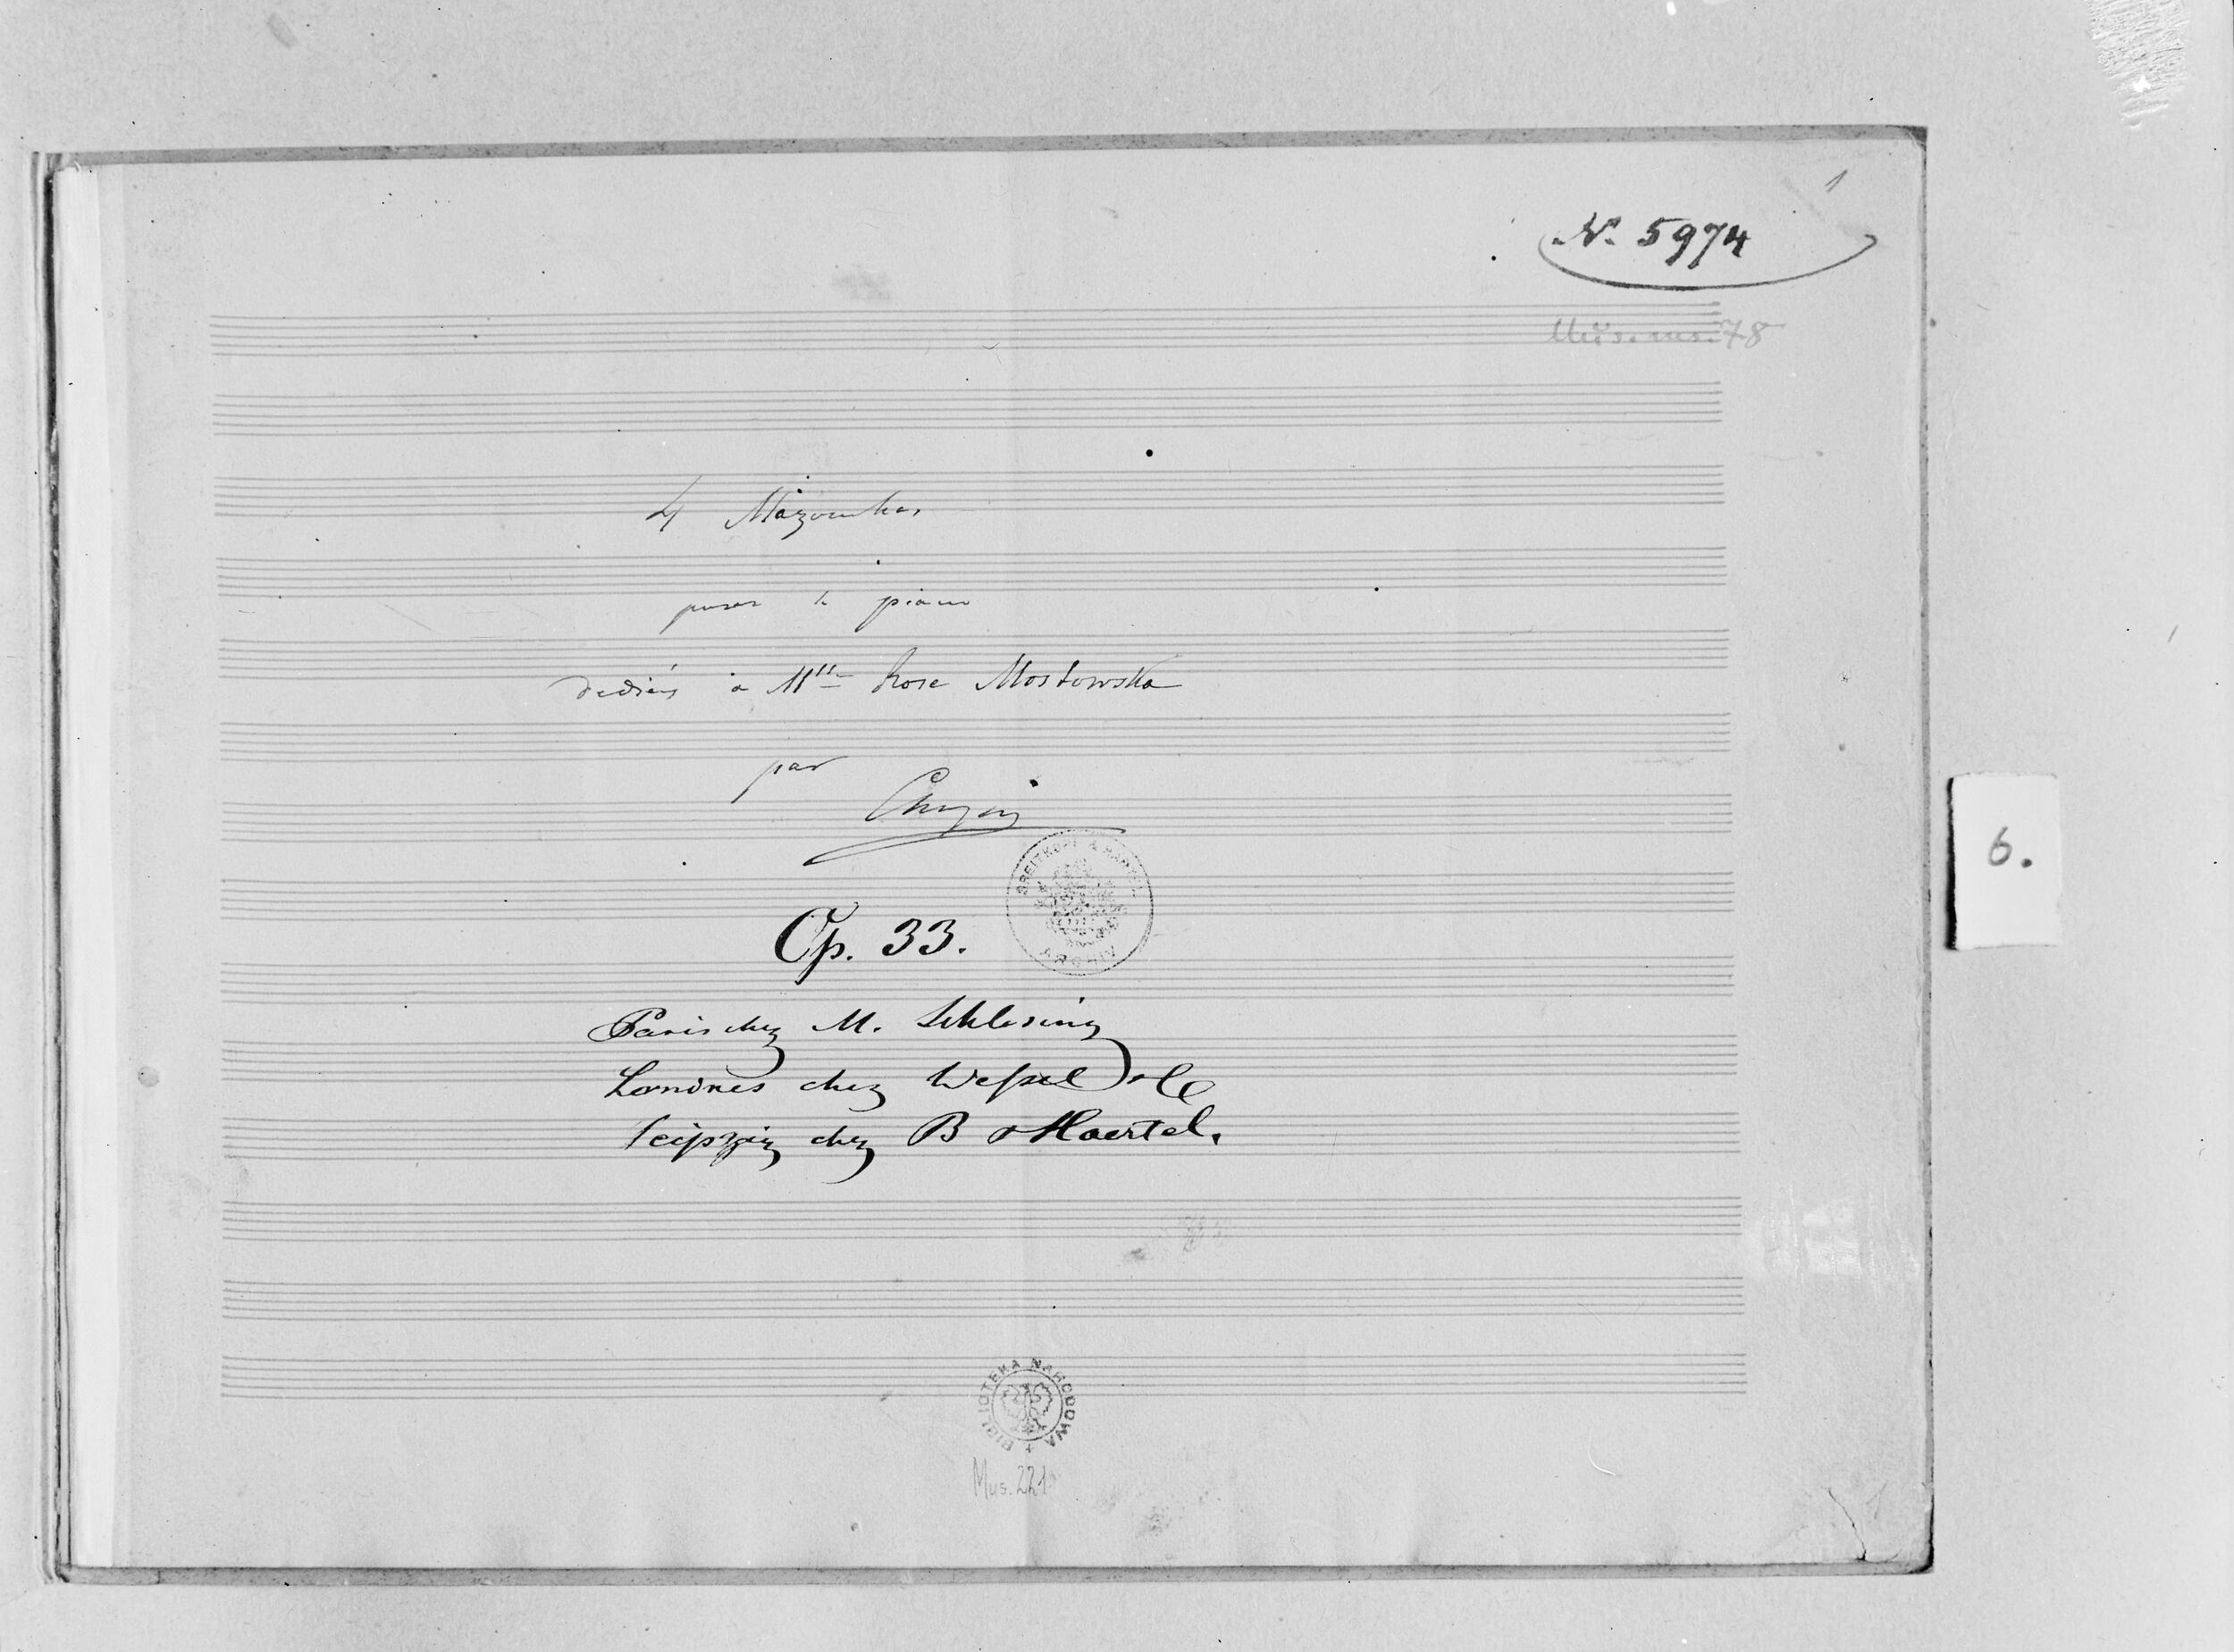 1
N. 5974
Mus. ms. 78
4 Mazourkas
pour le piano
dediés à Mlle Rose Mostowska
par
Chopin
BREITKOPF & HÄRTEL
ARCHIV
Op. 33.
Paris chez M. Schlesing
Londres chez Wessel & Co
Leipzig chez B & Haertel.
6.
BIBLIOTEKA NARODOWA
Mus. 221
1